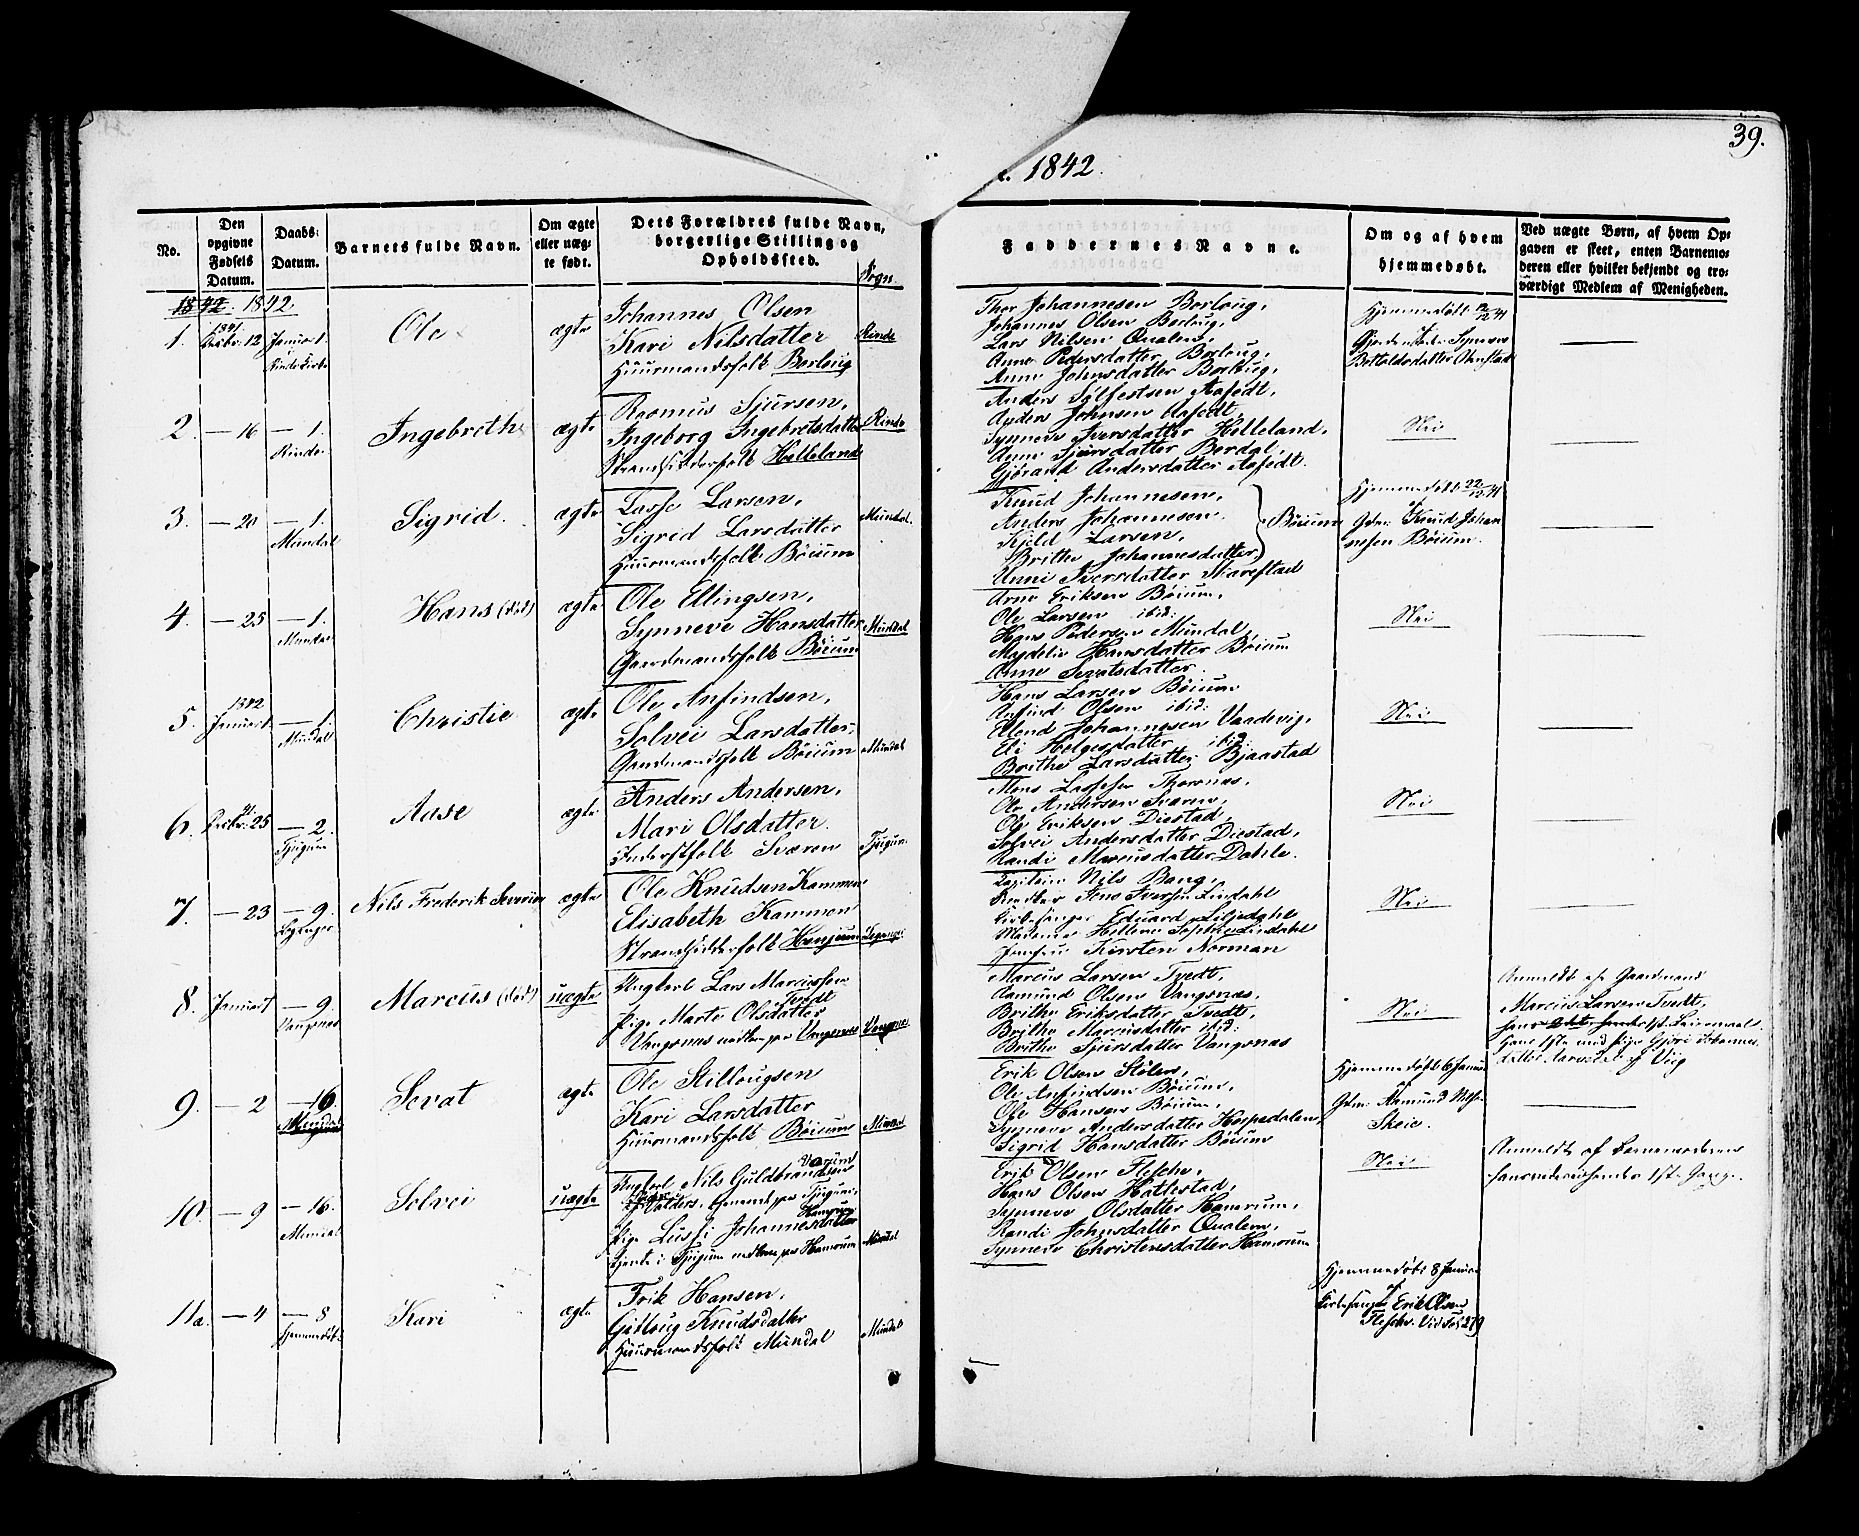 39.
1842.
No.
Den opgivne Fødsels Datum.
Daabs-Datum.
Barnets fulde Navn.
Om ægte eller uæg-te født.
Dets Forældres fulde Navn, borgerlige Stilling og Opholdssted.
Sogn.
Faddernes Navne.
Om og af hvem hjemmedøbt.
Ved uægte Børn, af hvem Op-gaven er skeet, enten Barnemo-deren eller hvilket bekjendt og tro-værdigt Medlem af Menigheden.
1842. 1842.
1.
1841
Decbr: 12
Januar 1.
Rinde Kirke
Ole
ægte
Johannes Olsen
Kari Nilsdatter
Huusmandsfolk Borloug
Rinde
Thor Johannesen Borloug,
Johannes Olsen Borloug,
Lars Nilsen Qualem,
Anne Pedersdatter Borloug,
Anne Johnsdatter Borloug,
Hjemmedøbt 12/12 41
Synneve
2.
— 16
— 1.
Rinde
Ingebrethe
ægte
Rasmus Sjursen,
Ingeborg Ingebretsdatter
Strandsidderfolk Helleland
Rinde
Anders Sølfestsen Aafedt,
Anders Johnsen Aafedt,
Synneve Iversdatter Helleland,
Anne Sjursdatter Berdal,
Gjørand Andersdatter Aafedt.
Nei
3.
— 20
— 1.
Mundal
Sigrid.
ægte
Lasse Larsen,
Sigrid Larsdatter
Huusmandsfolk Bøium
Mundal.
Knud Johannesen,
Anders Johannesen.
Kjeld Larsen,
Brithe Johannesdatter,
Bøium
Unni Iversdatter Skarestad
Hjemmedøbt 22/12 41
af
Gdm: Knud Johan-
nesen Bøium.
4.
— 25
— 1.
Mundal
Hans (død)
ægte
Ole Ellingsen,
Synneve Hansdatter
Gaardmandsfolk Bøium
Mundal
Arne Eriksen Bøium,
Ole Larsen ibid:
Hans Pedersen Mundal,
Magdeli Hansdatter Bøium
Anne Sevatsdatter.
Nei
5.
1842
Januar 1.
— 1.
Mundal
Christie
ægte
Ole Anfindsen,
Solvei Larsdatter,
Gaardmandsfolk Bøium
Mundal
Hans Larsen Bøium
Anfind Olsen ibid:
Erlend Johannesen Vaadevig,
Eli Helgesdatter ibid:
Brithe Larsdatter Bjaastad
Nei
6.
41
Decbr: 25
— 2.
Tjugum
Aase
ægte
Anders Andersen,
Mari Olsdatter.
Inderstfolk Sværen
Tjugum
Mons Lassesen Thorsnæs,
Ole Andersen Sværen,
Ole Eriksen Diestad,
Solvei Andersdatter Diestad,
Randi Marcusdatter Dahle.
Nei
7.
— 23
— 9.
Nils Frederik Severin
ægte
Ole Knudsen Kammen
Elisabeth Kammen
Strandsidderfolk Hanjum
Capitain Nils Bang,
Kirkesanger Eduard Liljedahl
Kirsten Norman
Nei
8.
Januar 1
— 9.
Vangsnæs
Marcus (død)
uægte
Ungkarl Lars Marcussen
Tvedt
Pige Marte Olsdatter
Vangsnæs
Vangsnæs
Marcus Larsen Tvedt,
Aamund Olsen Vangsnæs,
Brithe Eriksdatter Tvedt,
Brithe Marcusdatter ibid:
Brithe Sjursdatter Vangsnæs
Nei
Anmeldt af Gaardmand
Marcus Larsen Tvedt,
9.
— 2
— 16
Mundal
Sevat
ægte
Ole Stillougsen
Kari Larsdatter
Huusmandsfolk Bøium
Erik Olsen Stølen,
Ole Anfindsen Bøium,
Ole Hansen Bøium,
Synneve Andersdatter Horpedalen,
Sigrid Hansdatter Bøium
Hjemmedøbt 6 Januar
af
Gdm: Aamund
Skeie.
10.
— 9
— 16.
Mundal
Solvei
uægte
Ungkarl Nils Guldbrandsen
Valders,
Pige Lussi Johannesdatter
Hamrum
Mundal
Erik Olsen Flesche,
Hans Olsen Hattestad,
Synneve Olsdatter Hamrum,
Randi Johnsdatter Qualem,
Synneve Christensdatter Hamrum
Nei
Anmeldt af Barnemoderen
11a.
— 4
— 8
Hjemmedøbt
Kari
ægte
Erik Hansen,
Gitloug Knudsdatter
Huusmandsfolk Mundal
Mundal
Hjemmedøbt 8 Januar
af
Kirkesanger Erik Olsen
Flesche. Vid Fol: 279